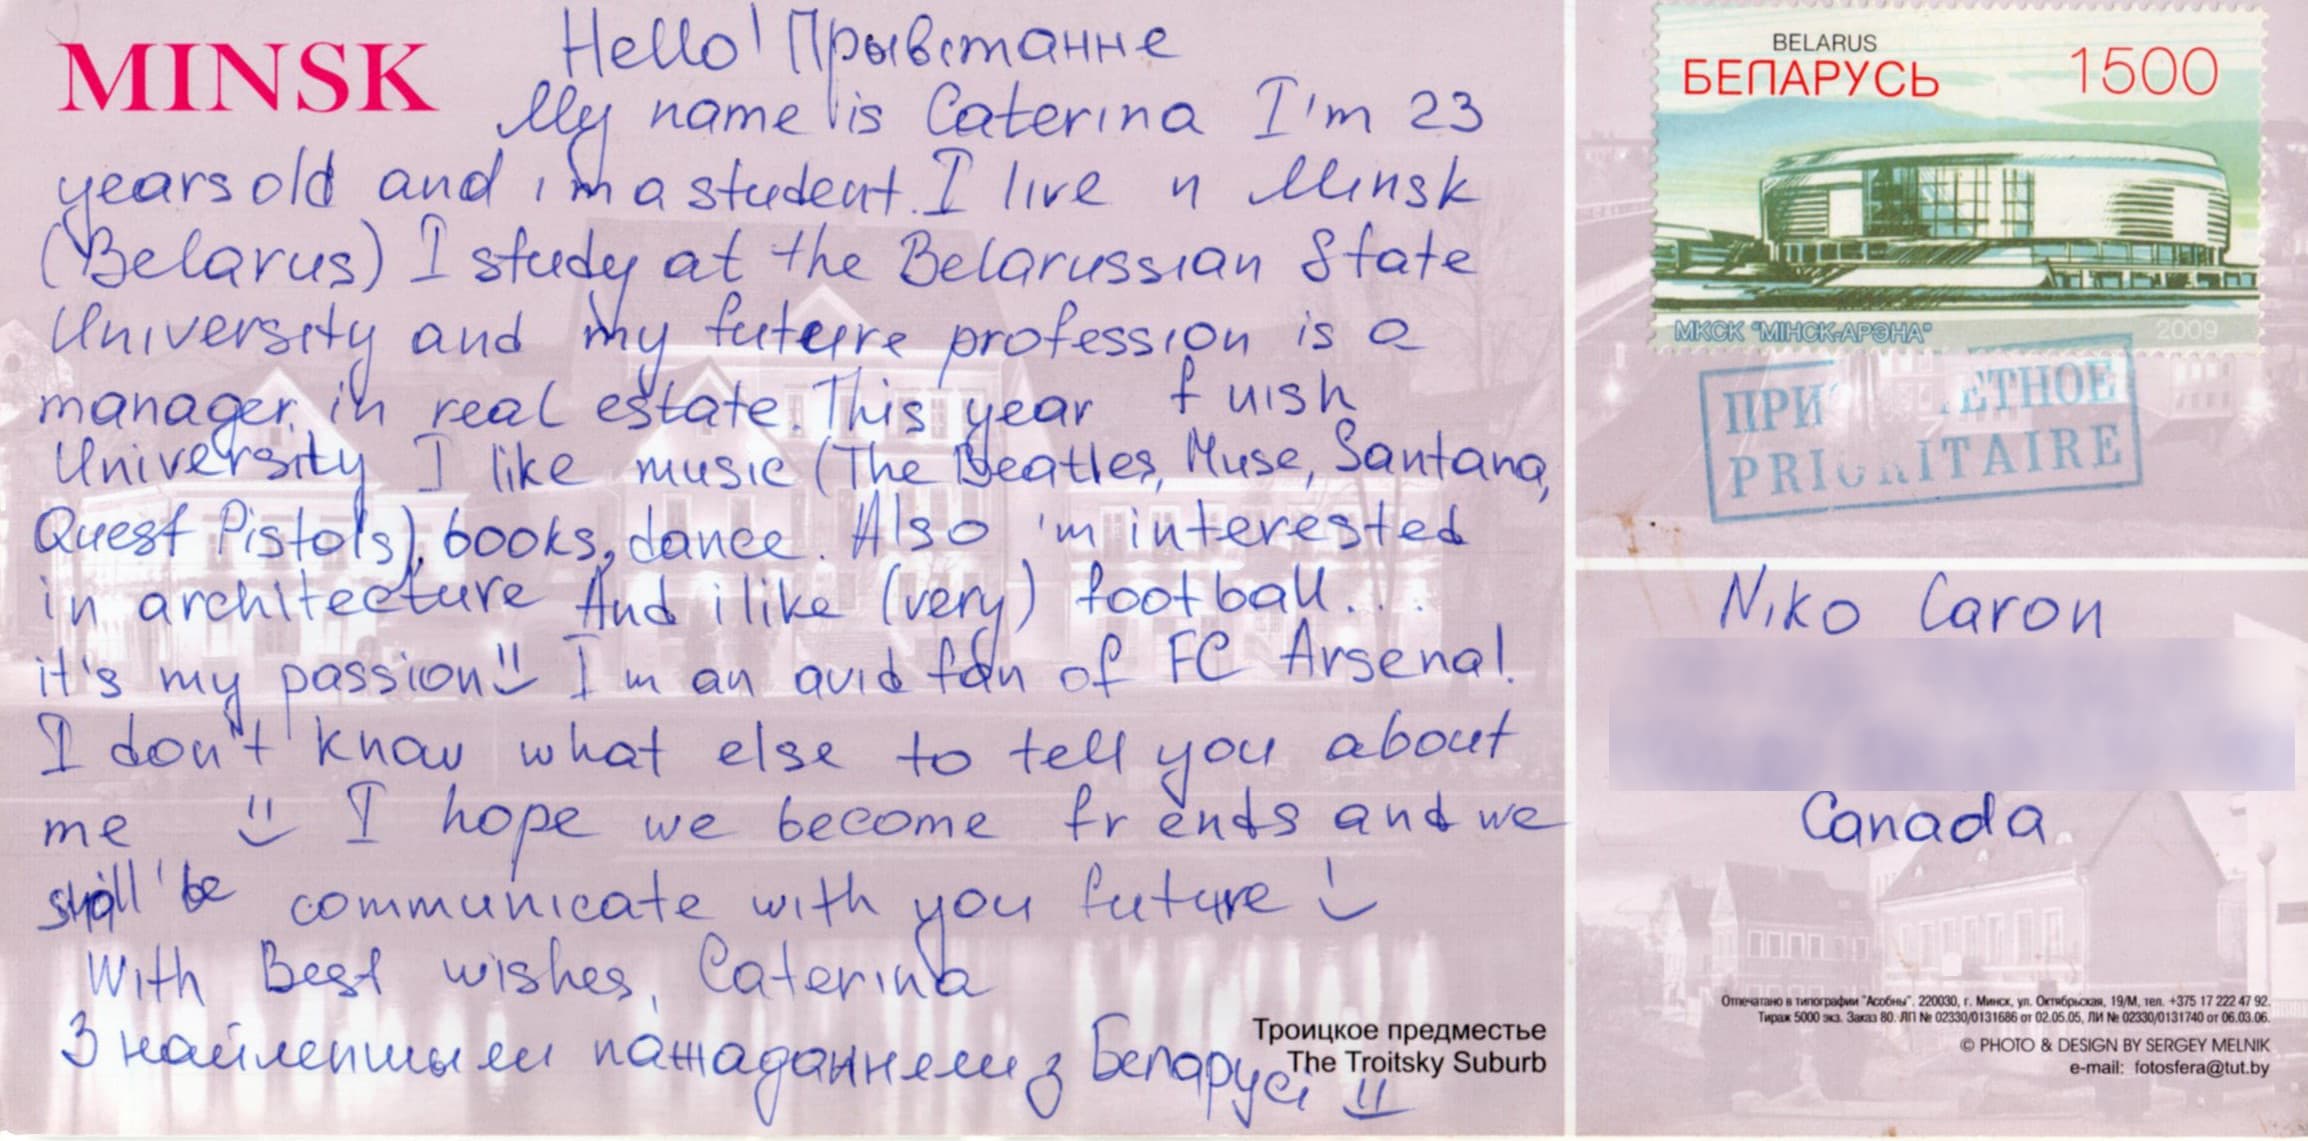 MINSK
Hello! Прывiтанне
My name is Caterina I'm 23
years old and i'm a student. I live n Minsk
(Belarus) I study at the Belarussian State
University and my future profession is a
manager in real estate. This year f nish
University I like music (The Beatles, Muse, Santana,
Quest Pistols), books, dance. Also 'm interested
in architecture And i like (very) football...
it's my passion!! I'm an avid fan of FC Arsenal.
I don't know what else to tell you about
me I hope we become fr ends and we
shall be communicate with you future!
With Best wishes, Caterina
З найлепшымi пажаданнямi з Беларусi
Троицкое предместье
The Troitsky Suburb
BELARUS
БЕЛАРУСЬ 1500
МКСК "МІНСК-АРЭНА" 2009
ПРИ ЕТНОЕ
PRIORITAIRE
Niko Caron
Canada
Отпечатано в типографии "Асобны". 220030, г. Минск, ул. Октябрьская, 19/М, тел. +375 17 222 47 92.
Тираж 5000 экз. Заказ 80. ЛП № 02330/0131686 от 02.05.05, ЛИ № 02330/0131740 от 06.03.06.
© PHOTO & DESIGN BY SERGEY MELNIK
e-mail: fotosfera@tut.by